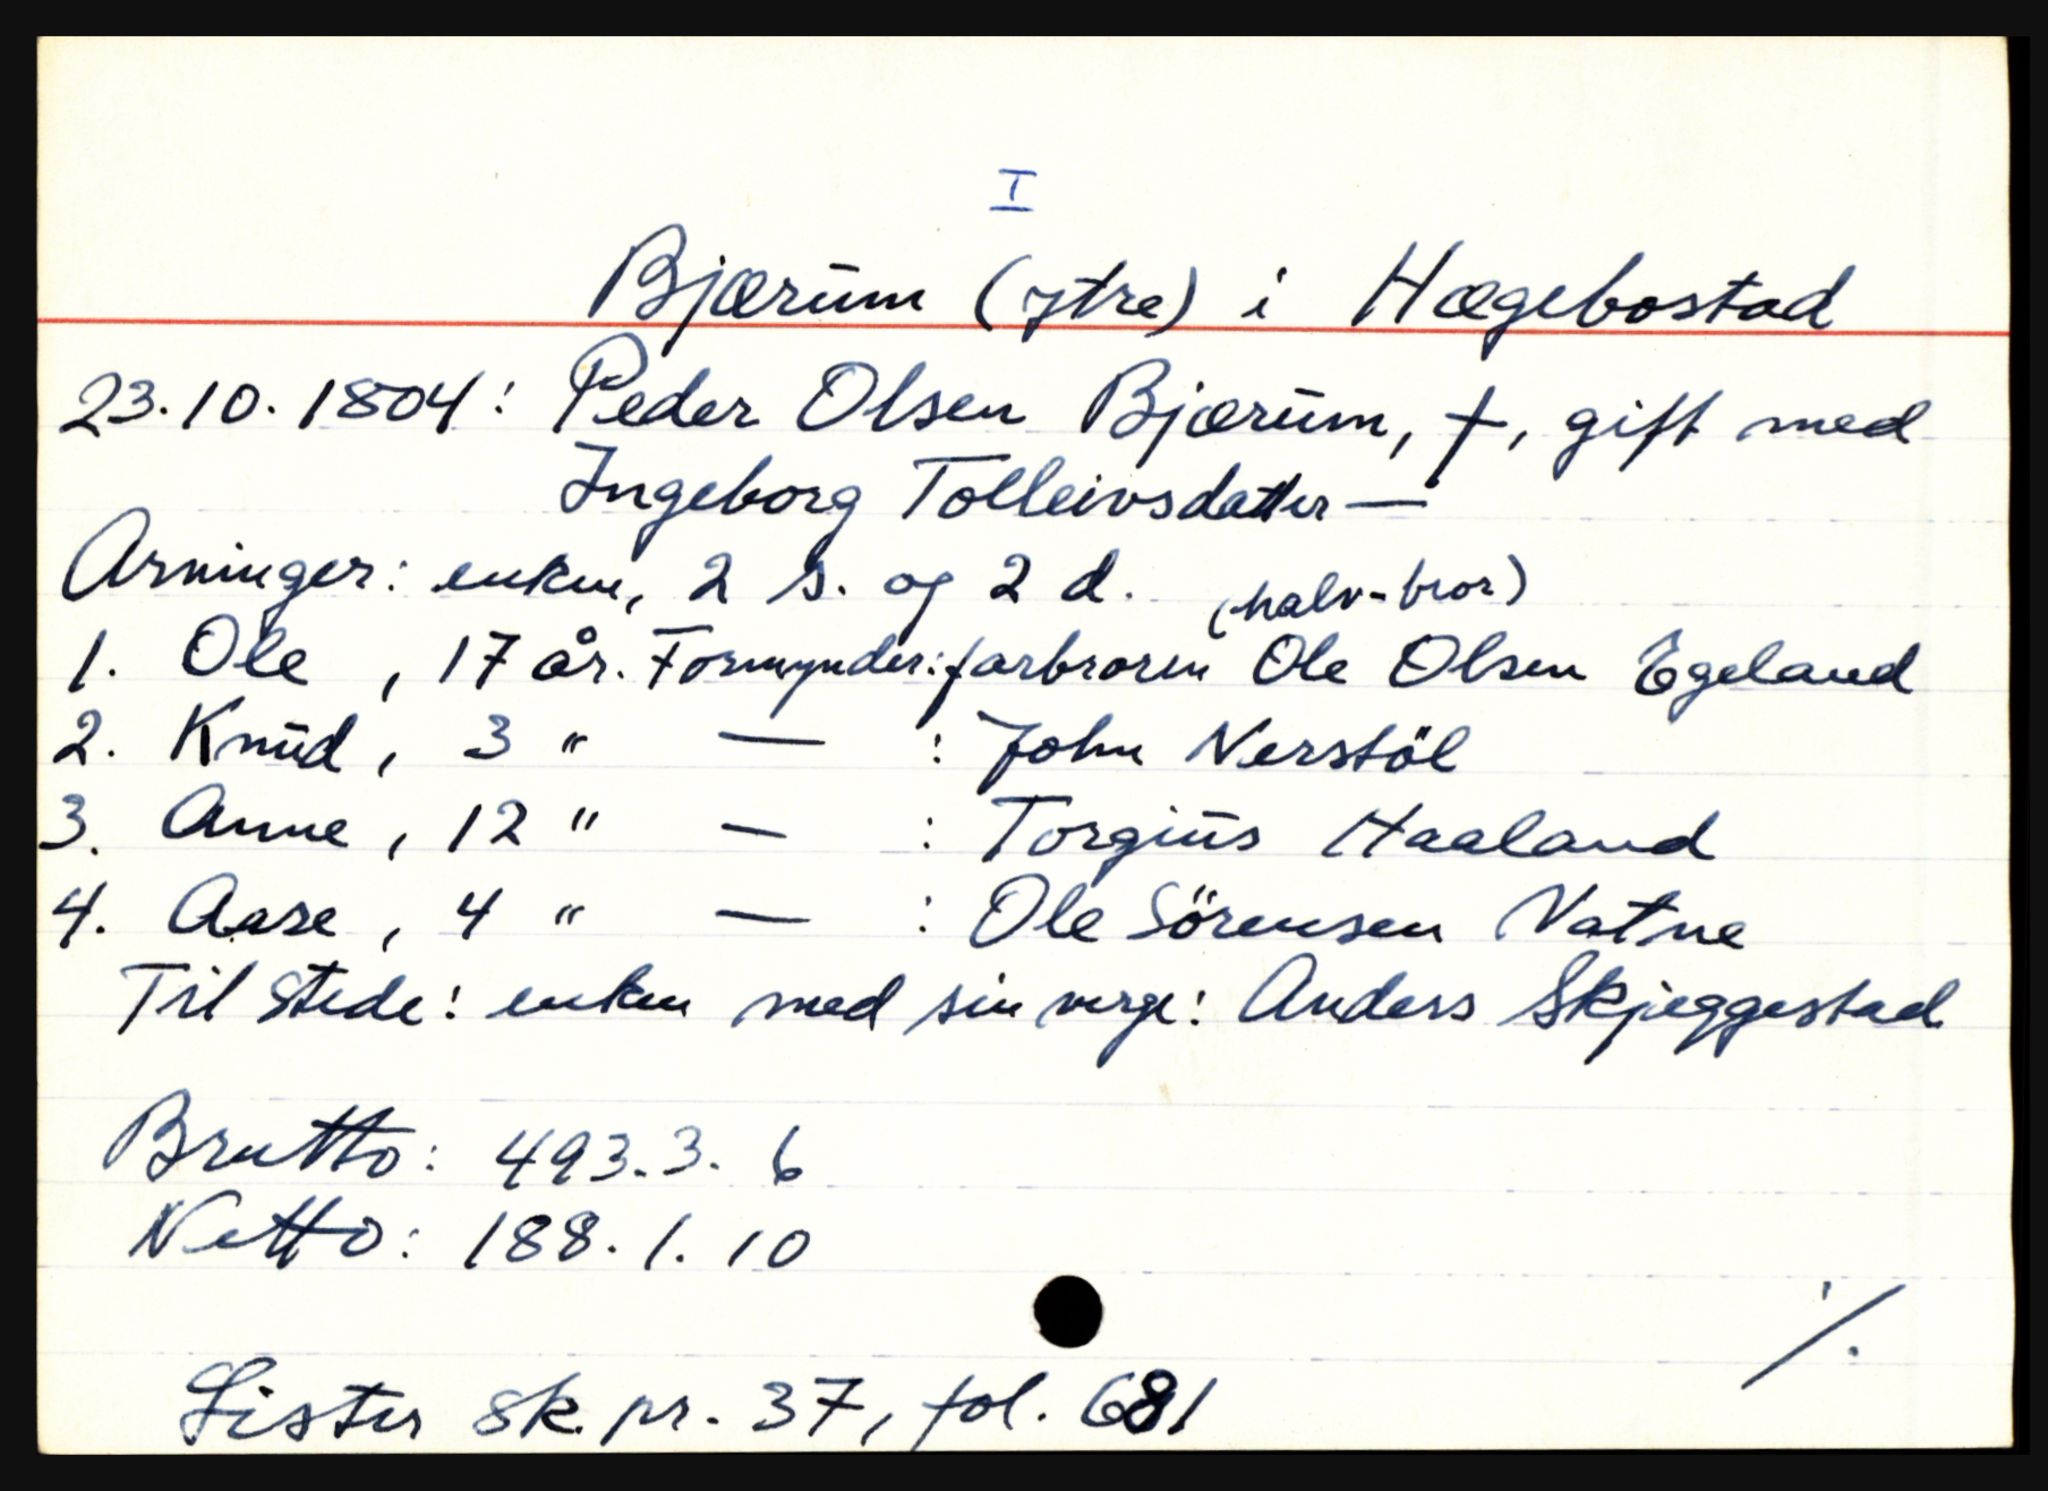 I
Bjærum (ytre) i Hægebostad
23.10.1804: Peder Olsen Bjærum, †, gift med
Ingeborg Tolleivsdatter —
Arvinger: enken, 2 s. og 2 d.
(halv-bror)
1. Ole , 17 år. Formynder: farbroren Ole Olsen Egeland
2. Knud, 3 " — : John Nerstöl
3. Anne, 12 " — : Torgius Haaland
4. Aase, 4 " — : Ole Sörensen Vatne
Til stede: enken med sin verge: Anders Skjeggestad
Brutto: 493.3.6
Netto: 188.1.10
./.
Lister sk.pr. 37, fol. 681